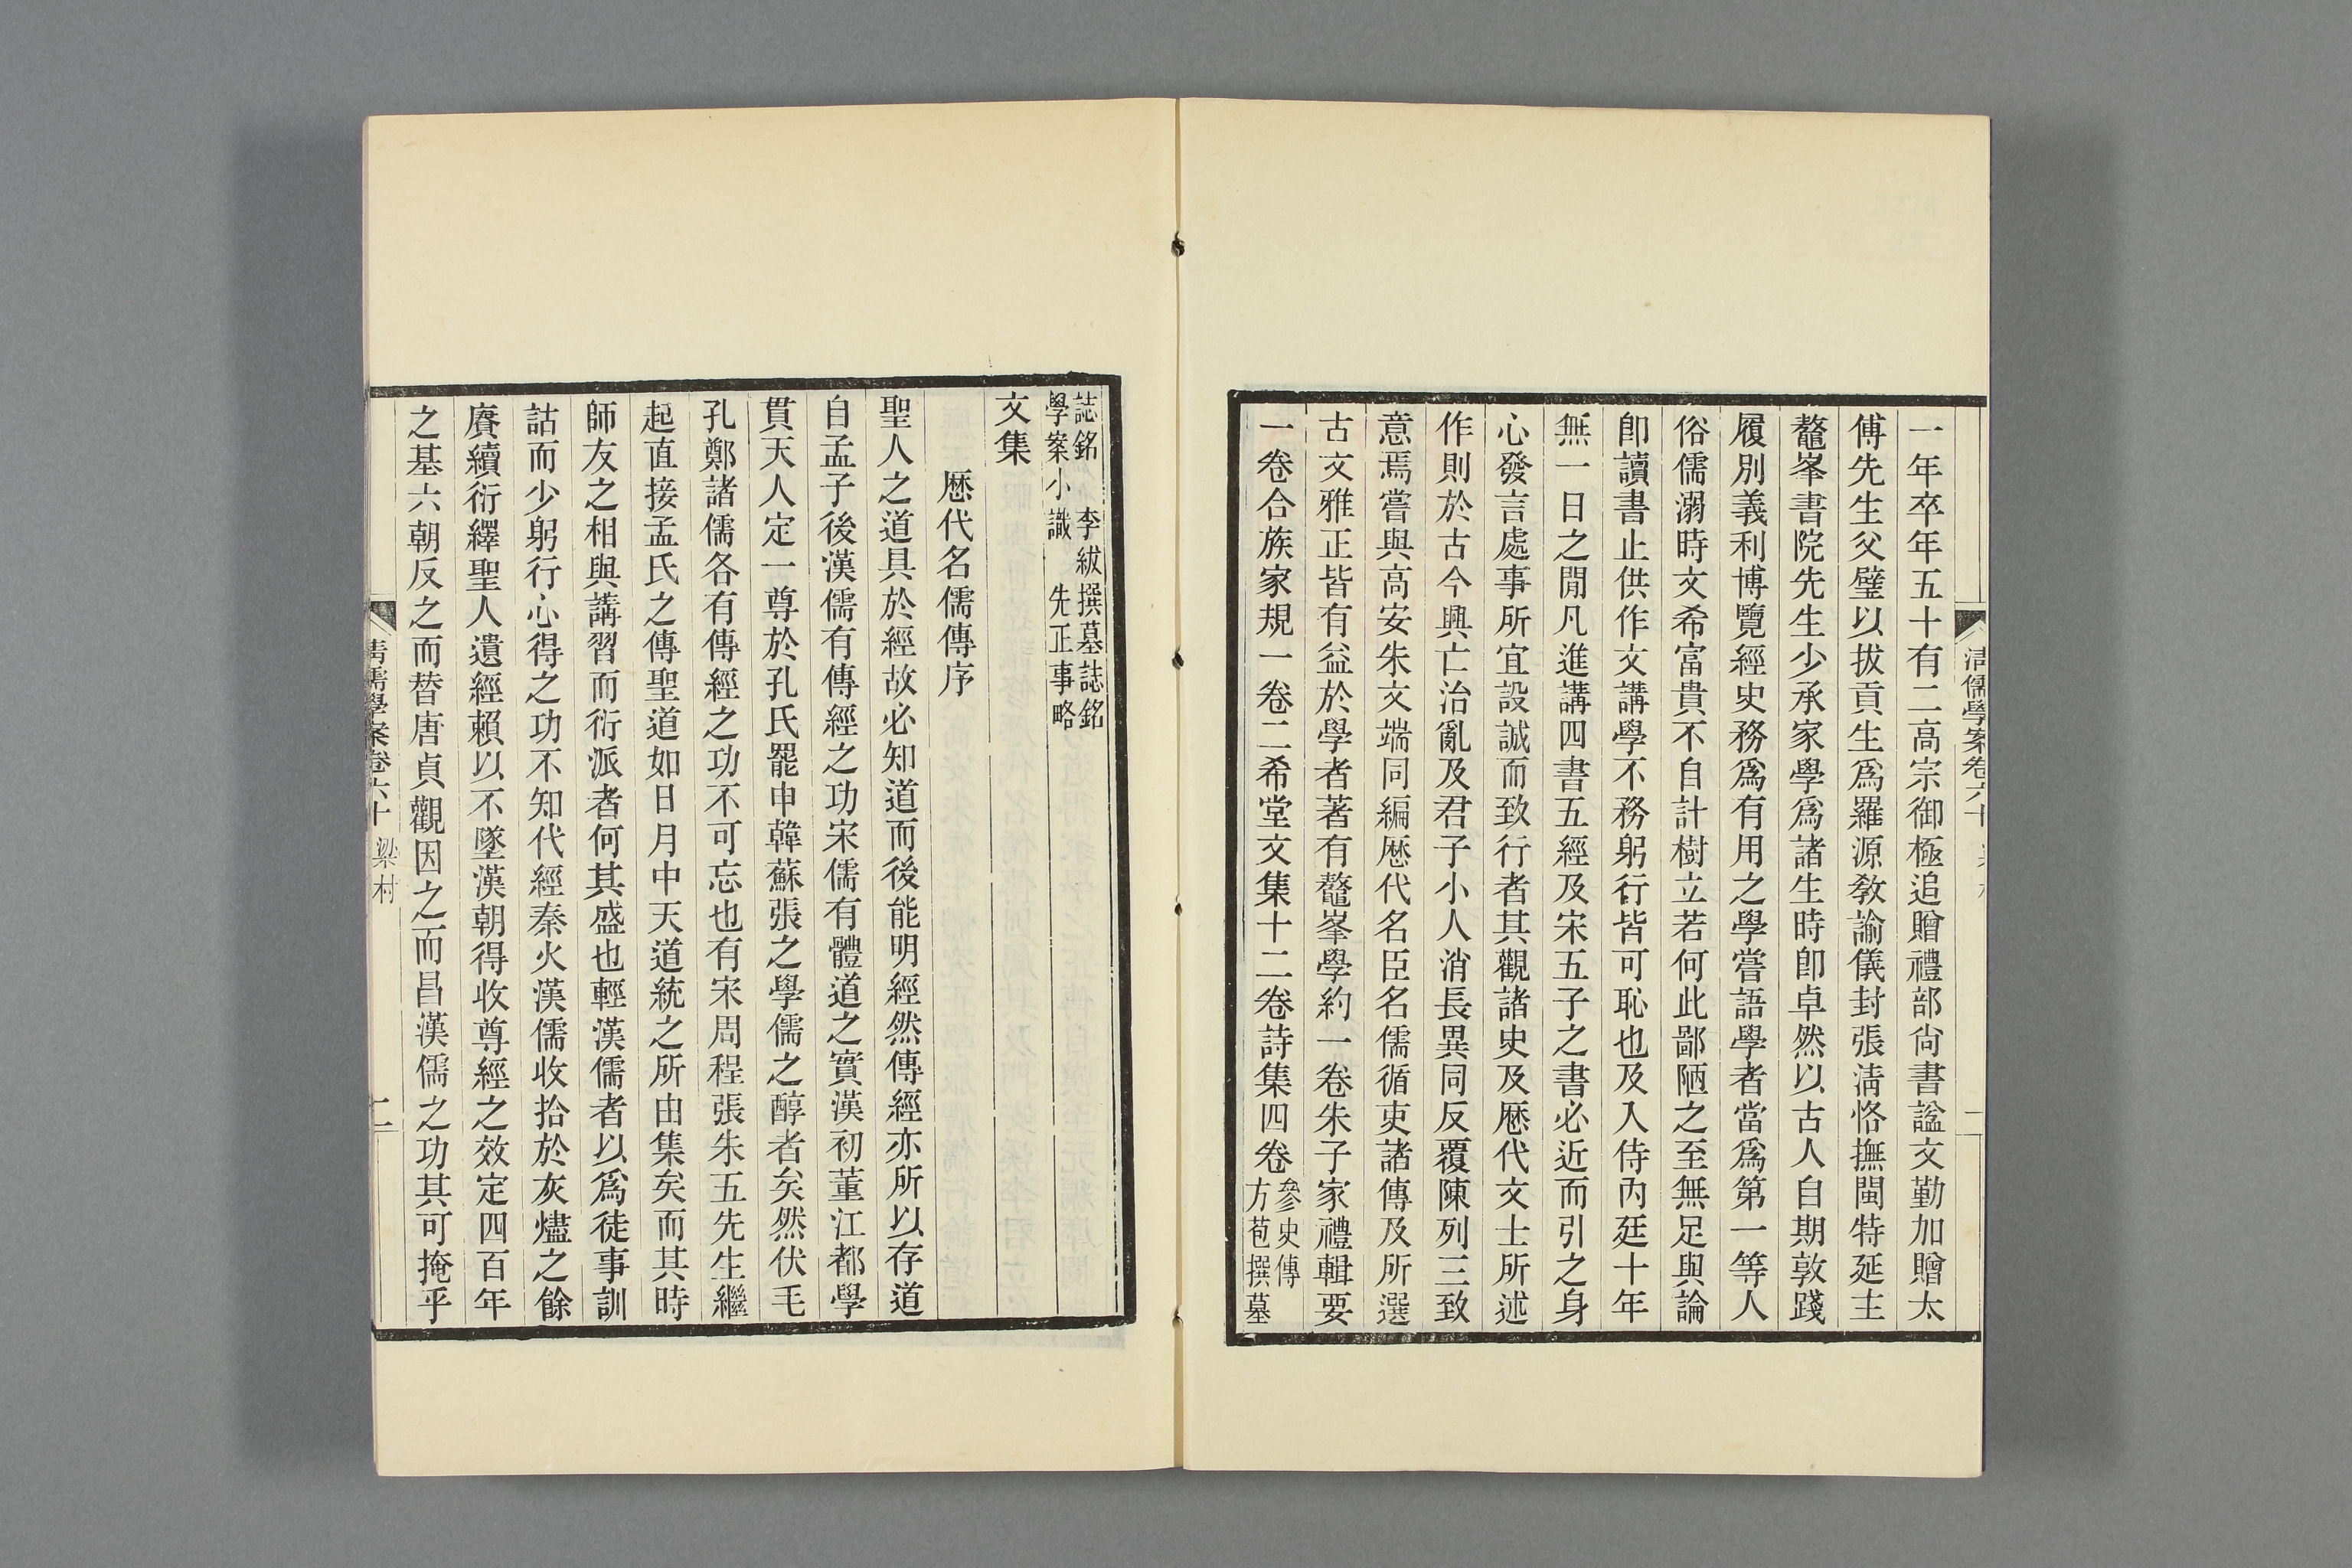 一年卒年五十有二高宗御極追贈禮部尙書諡文勤加贈太
傅先生父璧以拔貢生爲羅源敎諭儀封張淸恪撫閩特延主
鼇峯書院先生少承家學爲諸生時卽卓然以古人自期敦踐
履別義利博覽經史務爲有用之學嘗語學者當爲第一等人
俗儒溺時文希富貴不自計樹立若何此鄙陋之至無足與論
卽讀書止供作文講學不務躬行皆可恥也及入侍內廷十年
無一日之閒凡進講四書五經及宋五子之書必近而引之身
心發言處事所宜設誠而致行者其觀諸史及歷代文士所述
作則於古今興亡治亂及君子小人消長異同反覆陳列三致
意焉嘗與高安朱文端同編歷代名臣名儒循吏諸傳及所選
古文雅正皆有益於學者著有鼇峯學約一卷朱子家禮輯要
一卷合族家規一卷二希堂文集十二卷詩集四卷參史傳
方苞撰墓
誌銘 李紱撰墓誌銘
學案小識 先正事略
文集
歷代名儒傳序
聖人之道具於經故必知道而後能明經然傳經亦所以存道
自孟子後漢儒有傳經之功宋儒有體道之實漢初董江都學
貫天人定一尊於孔氏罷申韓蘇張之學儒之醇者矣然伏毛
孔鄭諸儒各有傳經之功不可忘也有宋周程張朱五先生繼
起直接孟氏之傳聖道如日月中天道統之所由集矣而其時
師友之相與講習而衍派者何其盛也輕漢儒者以爲徒事訓
詁而少躬行心得之功不知代經秦火漢儒收拾於灰燼之餘
賡續衍繹聖人遺經賴以不墜漢朝得收尊經之效定四百年
之基六朝反之而替唐貞觀因之而昌漢儒之功其可掩乎
淸儒學案卷六十 梁村 二